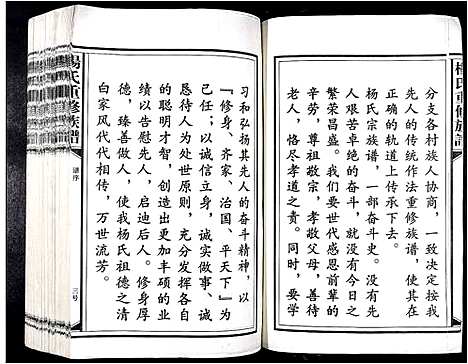 楊氏重修族譜
分支各村族人协商，一致决定按我
先人的传统作法重修族谱，使其在
正确的轨道上传承下去。
杨氏宗族谱，一部奋斗史。没有先
人艰苦卓绝的奋斗，就没有我们今日
繁荣昌盛。我们要世代感恩前辈的
辛劳，尊祖敬宗，孝敬父母，善待
老人，恪尽孝道之责。同时，要学
习和弘扬其先人的奋斗精神，以
『修身、齐家、治国、平天下』为
己任；以诚信立身，诚实做事、诚
恳待人为处世原则，充分发挥各自
的聪明才智，创造出更加丰硕的业
绩以告慰先人，启迪后人。修身厚
德，臻善做人，使我杨氏祖德之清
白家风代代相传，万世流芳。
楊氏重修族譜
谱序
三号